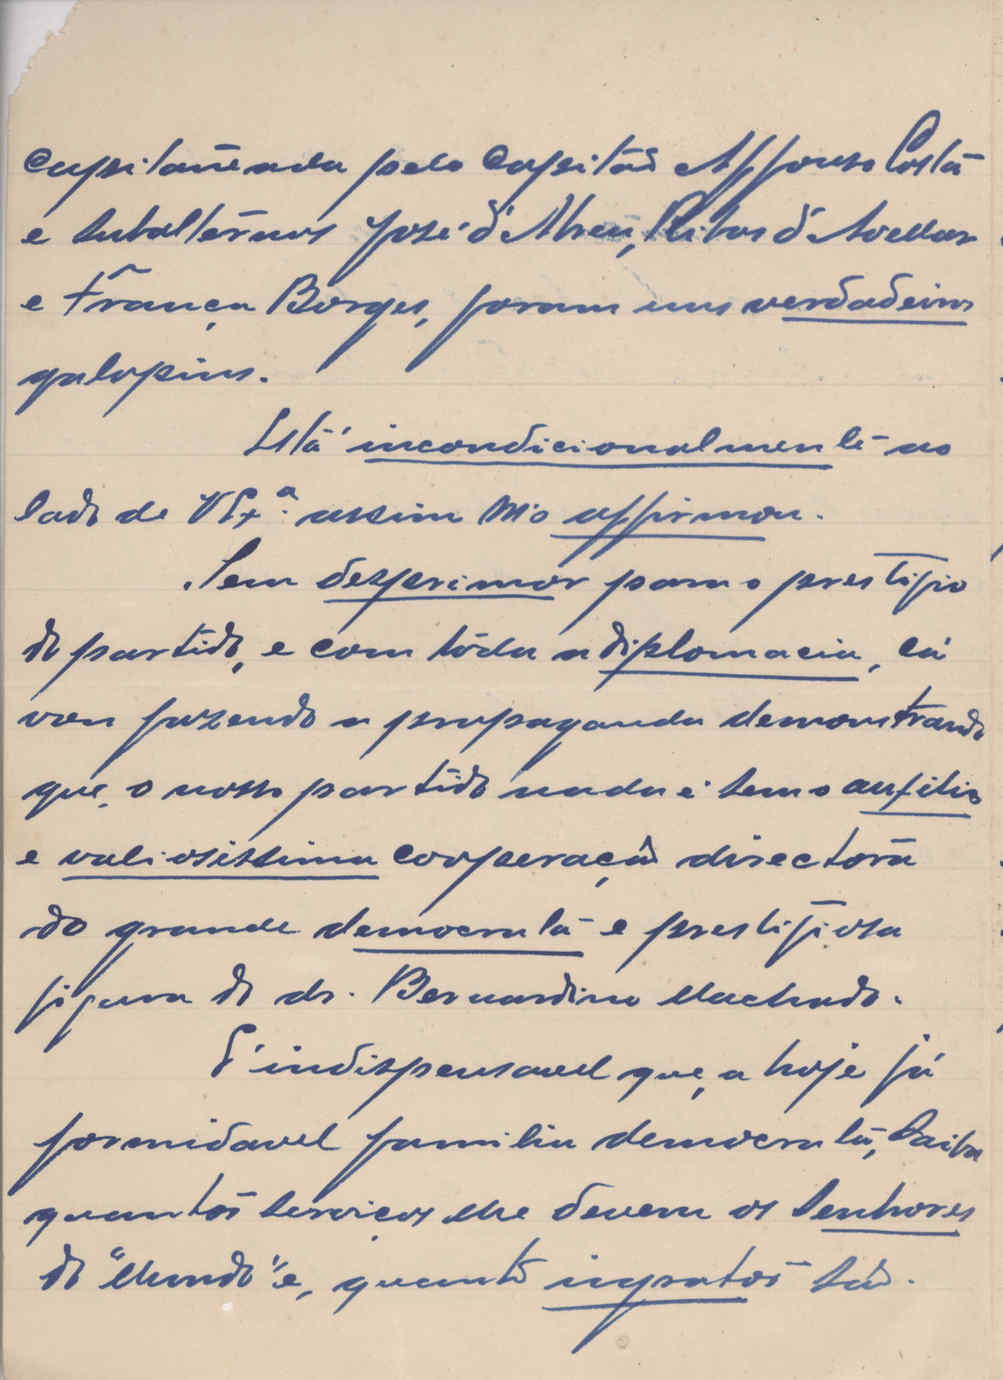 capitaneada pelo Capitão Affonso Costa
e subalternos José d'Abreu, Ribas d'Avellar
e França Borges, foram uns verdadeiros
galopins.
Está incondicionalmente ao
lado de V Ex.ª assim m'o affirmou.
Sem desprimor para o prestigio
do partido, e com tóda a diplomacia, cá
vou fazendo a propaganda demonstrando
que, o nosso partido nada é sem o auxilio
e valiosissima cooperação directora
do grande democrata e prestijiosa
figura do dr. Bernardino Machado.
E' indispensavel que, a hoje já
formidavel familia democrata, saiba
quantos serviços lhe devem os senhores
do "Mundo" e, quanto ingratos são.